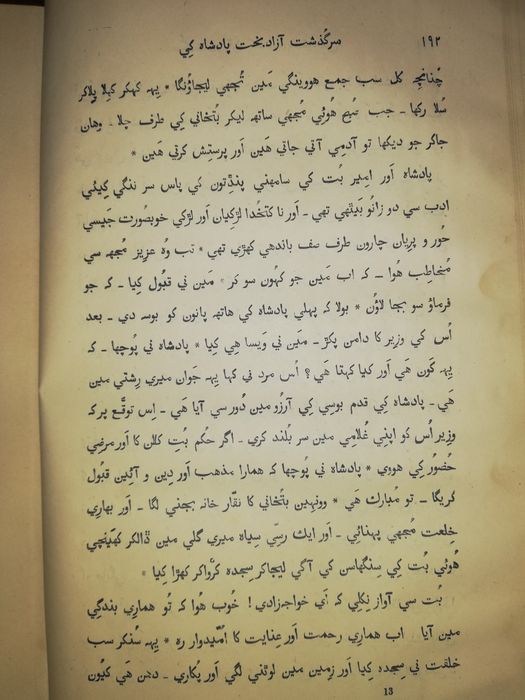 ١٩٢ سرگذشت آزاد بخت پادشاہ کي
چُنانچہ کل سب جمع هووینگي مَین تُجھي لیجاؤنگا * یہہ کہکر کہِلا پِلاکر
سُلا رکھا ـ جب صُبح هُوئي مُجھي ساتھہ لیکر بُتخاني کي طرف چلا ـ وهان
جاکر جو دیکھا تو آدمِي آتي جاتي هَین اَور پرستِش کرتي هَین *
پادشاہ اَور امِیر بُت کي سامھني پنڈِتون کي پاس سر ننگي کِیئي
ادب سي دو زانُو بَیٹھي تھي ـ اَور نا کتخُدا لڑکِیان اَور لڑکي خوبصُورت جَیسي
حُور و پریان چارون طرف صف باندھي کھڑي تھي * تب وُہ عزِیز مُجھہ سي
مُخاطِب هُوا ـ کہ اب مَین جو کہُون سو کر * مَین ني قبُول کِیا ـ کہ جو
فرماؤ سو بجا لاؤُن * بولا کہ پہلي پادشاہ کي هاتھہ پانون کو بوسہ دي ـ بعد
اُس کي وزِیر کا دامن پکڑ ـ مَین ني وَیسا هِي کِیا * پادشاہ ني پُوچھا ـ کہ
یِہہ کَون هَي اَور کیا کہتا هَي ؟ اُس مرد ني کہا یِہہ جَوان میري رِشتي مین
هَي ـ پادشاہ کِي قدم بوسِي کي آرزُو مین دُور سي آیا هَي ـ اِس توقُّع پر کہ
وزِیر اُس کو اپنِي غُلامِي مین سر بُلند کري ـ اگر حُکم بُتِ کلان کا اَور مرضِي
حُضُور کِي هووي * پادشاہ ني پُوچھا کہ همارا مذهب اَور دِین و آئِین قبُول
کریگا ـ تو مُبارک هَي * وونہِین بُتخاني کا نقّار خانہ بجني لگا ـ اَور بھارِي
خِلعت مُجھي پہنائِي ـ اَور ایك رسِّي سِیاہ میري گلي مین ڈالکر کھَینچي
هُوئي بُت کي سِنگھاسن کي آگي لیجاکر سِجدہ کرواکر کھڑا کِیا *
بُت سي آواز نِکلِي کہ اَي خواجہ زادي ! خُوب هُوا کہ تُو همارِي بندگِي
مین آیا اب همارِي رحمت اَور عِنایت کا اُمّیدوار رہ * یِہہ سُنکر سب
خلقت ني سِجدہ کِیا اَور زمِین مین لوٹني لگي اَور پُکاري ـ دھن هَي کیُون
13